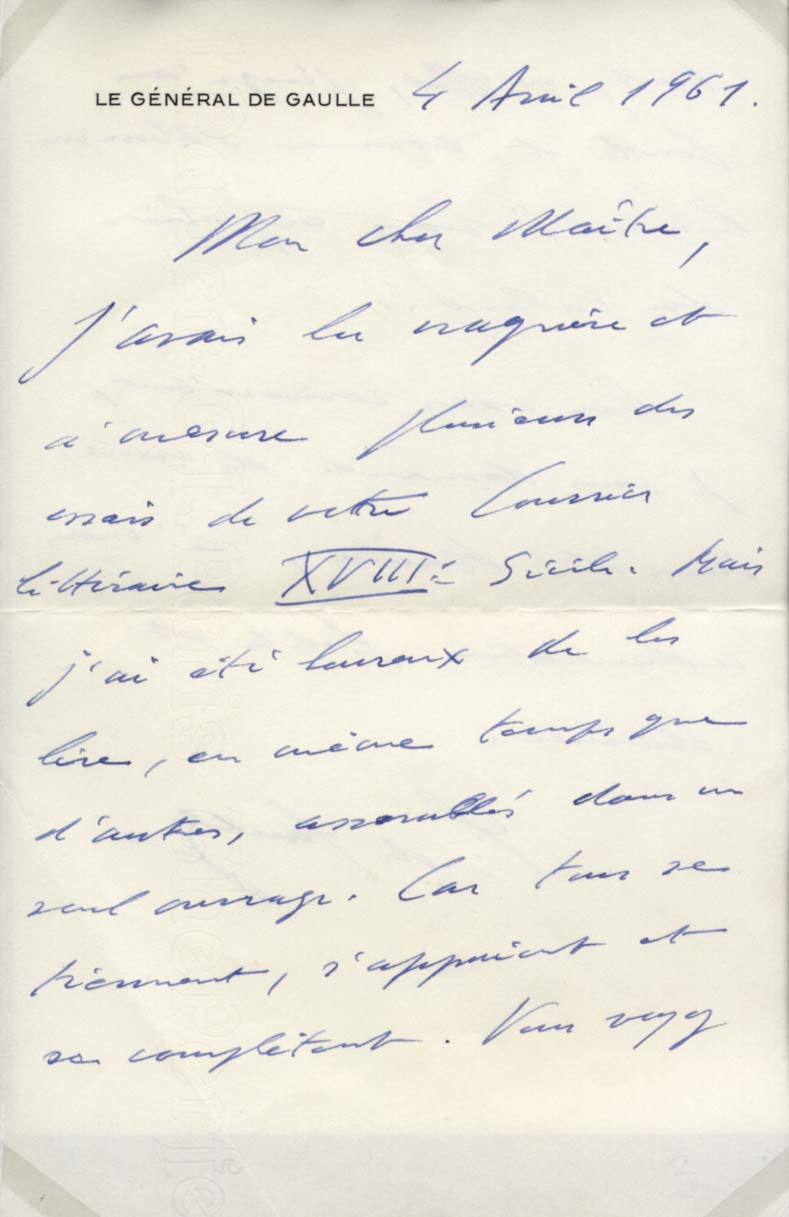 LE GÉNÉRAL DE GAULLE 4 Avril 1961.
Mon cher Maître,
J'avais lu naguère et
à mesure plusieurs des
essais de votre Courrier
littéraire XVIIIè Siècle. Mais
j'ai été heureux de les
lire, en même temps que
d'autres, assemblés dans un
seul ouvrage. Car tous se
tiennent, s'appuient et
se complètent. Vous voyez